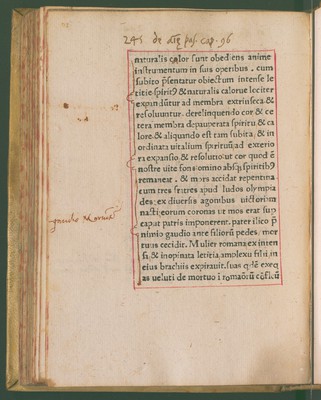 245 de
cap. 96
naturalis calor sunt obediens anime
instrumentum in suis operibus. cum
subito p̃sentatur obiectum intense le
titie spiritꝰ & naturalis calor ue lociter
expandũtur ad membra extrinseca &
resoluuntur. derelinquendo cor & ce
tera membra depauperata spiritu & ca
lore. & aliquando est tam subita, & in
ordinata uitalium spirituũ ad exterio
ra expansio. & resolutio ut cor quod ẽ
nostre uite fons omino absq; spiritibꝰ
remaneat. & mors accidat repentina
cum tres fr̃atres apud ludos olympia
des, ex diuersis agonibus uictoriam
nacti, eorum coronas ut mos erat sup
caput patris imponerent. pater ilico p̃
nimio gaudio ante filiorũ pedes, mor
tuus cecidit. Mulier romana ex inten
sa, & inopinata letitia, amplexu filii, in
eius brachiis expirauit. suas
as ueluti de mortuo i romaõrũ